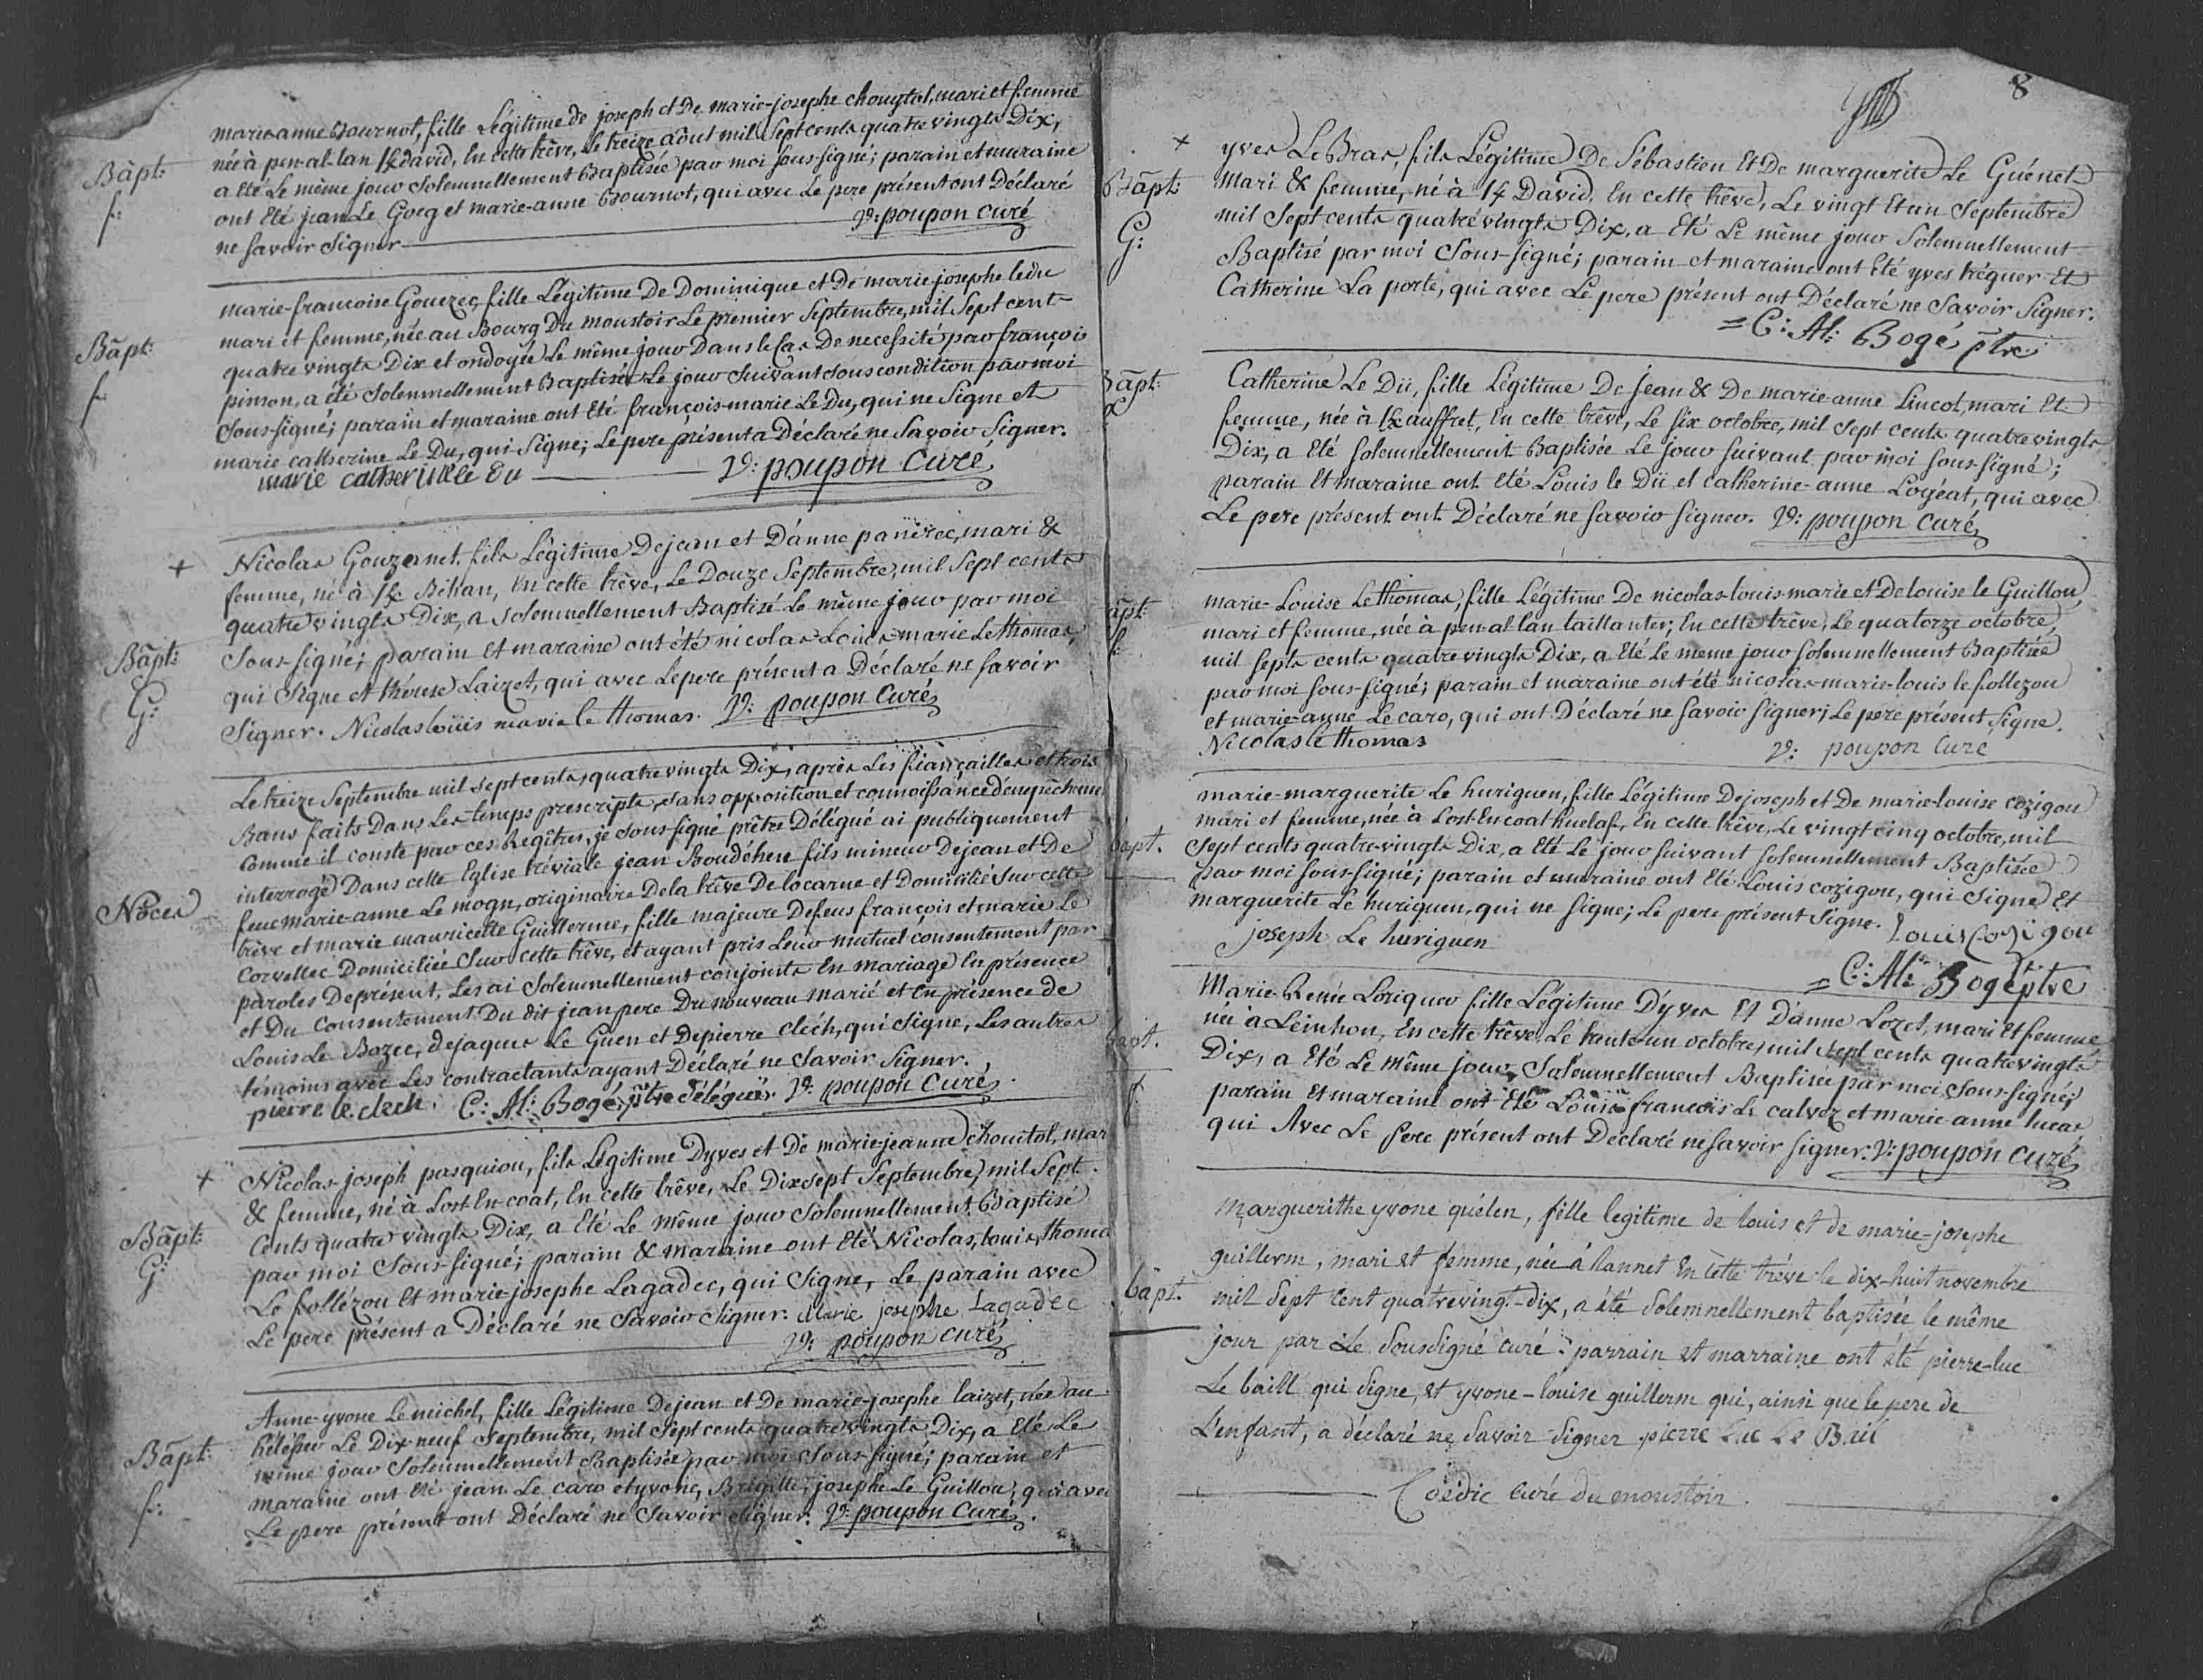 Bapt:
f:
marie anne Bournot, fille Légitime de joseph et De marie-josephe chouytol, mari et femme
née à pen-al-lan K/david, En cette trêve, le treize août mil Sept cents quatre vingts Dix,
a Eté Le même jour Solemnellement Baptisée par moi Sous-signé; parain et maraine
ont Eté jean Le Goeg et marie-anne Bournot, qui avec Le pere présent ont Déclaré
ne savoir Signer
V: poupon curé
Bapt:
f:
marie-francoise Gouezec, fille Légitime De Dominique et De marie josephe le du
mari et femme, née au Bourg Du moustoir Le premier Septembre, mil Sept cents
quatre vingts Dix et ondoyée Le même jour Dans le Cas De necessité par françois
pinson, a été Solemnellement Baptisée Le jour Suivant sous condition par moi
Sous-signé; parain et maraine ont Eté françois-marie Le Du, qui ne Signe et
marie catherine Le Du, qui Signe; Le pere présent a Déclaré ne Savoir Signer.
marie catherine le du
V: poupon curé
+
Bapt:
G:
Nicolas Gouzernet, fils Légitime De jean et D'anne panivec, mari &
femme, né à K/ Bihan, En cette trêve, Le Douze Septembre, mil Sept cents
quatre vingts Dix, a Solemnellement Baptisé Le même jour par moi
Sous-signé; parain et maraine ont été nicolas Louis marie Le thomas,
qui Signe et thérese Laizet, qui avec Le pere présent a Déclaré ne savoir
Signer. Nicolas loüis marie le thomas. V: poupon curé
Noces
Le treize Septembre mil sept cents, quatre vingts Dix, après Les fiançailles et trois
Bans faits Dans Les temps prescripts, sans opposition et connoissance d'empêchement
comme il conste par ces Regîtres, je sous-signé prêtre Délégué ai publiquement
interrogé Dans cette Eglise tréviale jean Boudéhen fils mineur De jean et De
feue marie-anne Le mogn, originaire De la trêve De locarne et Domicilié Sur cette
trêve et marie mauricette Guillerme, fille majeure De feus françois et marie Le
Corvellec Domiciliée Sur cette trêve, et ayant pris Leur mutuel consentement par
paroles De présent, Les ai Solemnellement conjoints En mariage En présence
et Du consentement Du dit jean pere Du nouveau marié et En présence de
Louis Le Bozec, de jaques Le Guen et De pierre clech, qui Signe, Les autres
temoins avec Les contractants ayant Déclaré ne Savoir Signer.
pierre le clech. C: Al: Bogé, ptre délégué. V: poupon curé
+
Bapt:
G:
Nicolas-joseph pasquiou, fils Légitime D'yves et De marie-jeanne chouitol, mari
& femme, né à Lost-En-coat, En cette trêve, Le Dix sept Septembre, mil Sept
Cents quatre vingts Dix, a Eté Le même jour Solemnellement Baptisé
par moi Sous-signé; parain & maraine ont Eté Nicolas, louis, thomas
Le follézou Et marie-josephe Lagadec, qui Signe, Le parain avec
Le pere présent a Déclaré ne Savoir Signer. Marie josephe Lagadec
V: poupon curé
Bapt:
f:
Anne-yvone Le michel, fille Légitime De jean et De marie-josephe laizet, née au
Le Dix neuf Septembre, mil Sept cents quatre vingts Dix, a Eté Le
même jour Solemnellement Baptisée par moi Sous-signé; parain et
maraine ont Eté jean Le caro et yvone, Brigitte, josephe Le Guillou, qui avec
Le pere présent ont Déclaré ne Savoir Signer. V: poupon curé
8
+
Bapt:
G:
yves Le Bras, fils Légitime De Sébastien Et De marguerite Le Guénet
Mari & femme, né à K/ David, En cette trêve, Le vingt Et un Septembre
mil Sept cents quatre vingts Dix, a Eté Le même jour Solemnellement
Baptisé par moi Sous-signé; parain et maraine ont Eté yves tréguer Et
Catherine La porte, qui avec Le pere présent ont Déclaré ne Savoir Signer.
= C: Al: Bogé ptre
Bapt:
Catherine Le Dü, fille Légitime De jean & De marie anne Lincot, mari Et
femme, née à K/auffret, En cette trêve, Le six octobre, mil Sept cents quatre vingts
Dix, a Eté solemnellement Baptisée Le jour suivant par moi sous-signé;
parain Et maraine ont Eté Louis le Dü et catherine-anne Lorjéat, qui avec
Le pere présent ont Déclaré ne savoir signer. V: poupon curé
Bapt:
f:
marie-Louise Le thomas, fille Légitime De nicolas-louis-marie et De louise le Guillou,
mari et femme, née à pen-al-lan taillanter; En cette trêve, Le quatorze octobre,
mil septs cents quatre vingts Dix, a Eté Le même jour solemnellement Baptisée
par moi sous-signé; parain et maraine ont été nicolas-marie-louis le follezou
et marie-anne Le caro, qui ont Déclaré ne savoir signer; Le pere présent Signe.
Nicolas le thomas
V: poupon curé
bapt.
marie-marguerite Le huriguen, fille Légitime De joseph et De marie-louise cozigou
mari et femme, née à Lost-En coat huelaf, En cette trêve, Le vingt cinq octobre, mil
Sept cents quatre-vingts Dix, a Eté Le jour suivant solemnellement Baptisée
par moi sous-signé; parain et maraine ont Eté Louis cozigou, qui Signe Et
marguerite Le huriguen, qui ne signe; Le pere présent Signe.
joseph Le huriguen
Louis Cozigou
= C: Al: Bogé ptre
bapt.
f
Marie Renée Loriquer fille Légitime D'yves Et D'anne Lozet, mari Et femme
née à Leinhon, En cette trêve, Le trente-un octobre, mil Sept cents quatre vingts
Dix, a Eté Le même jour, Solemnellement Baptisée par moi Sous-signé;
parain Et maraine ont Eté Louis françois Le calvez et marie-anne lucas
qui Avec Le pere présent ont Déclaré ne savoir signer. V: poupon curé
bapt.
Marguerithe yvone quélen, fille legitime de louis et de marie-josephe
guillerm, mari et femme, née á lannet En cette trêve le dix-huit novembre
mil Sept Cent quatrevingt-dix, a été Solemnellement baptisée le même
jour par Le Soussigné curé: parrain et marraine ont été pierre-luc
Le baill qui signe, et yvone-louise guillerm qui, ainsi que le pere de
L'enfant, a déclaré ne Savoir Signer pierre Luc Le Bail
Coëdic curé du moustoir.